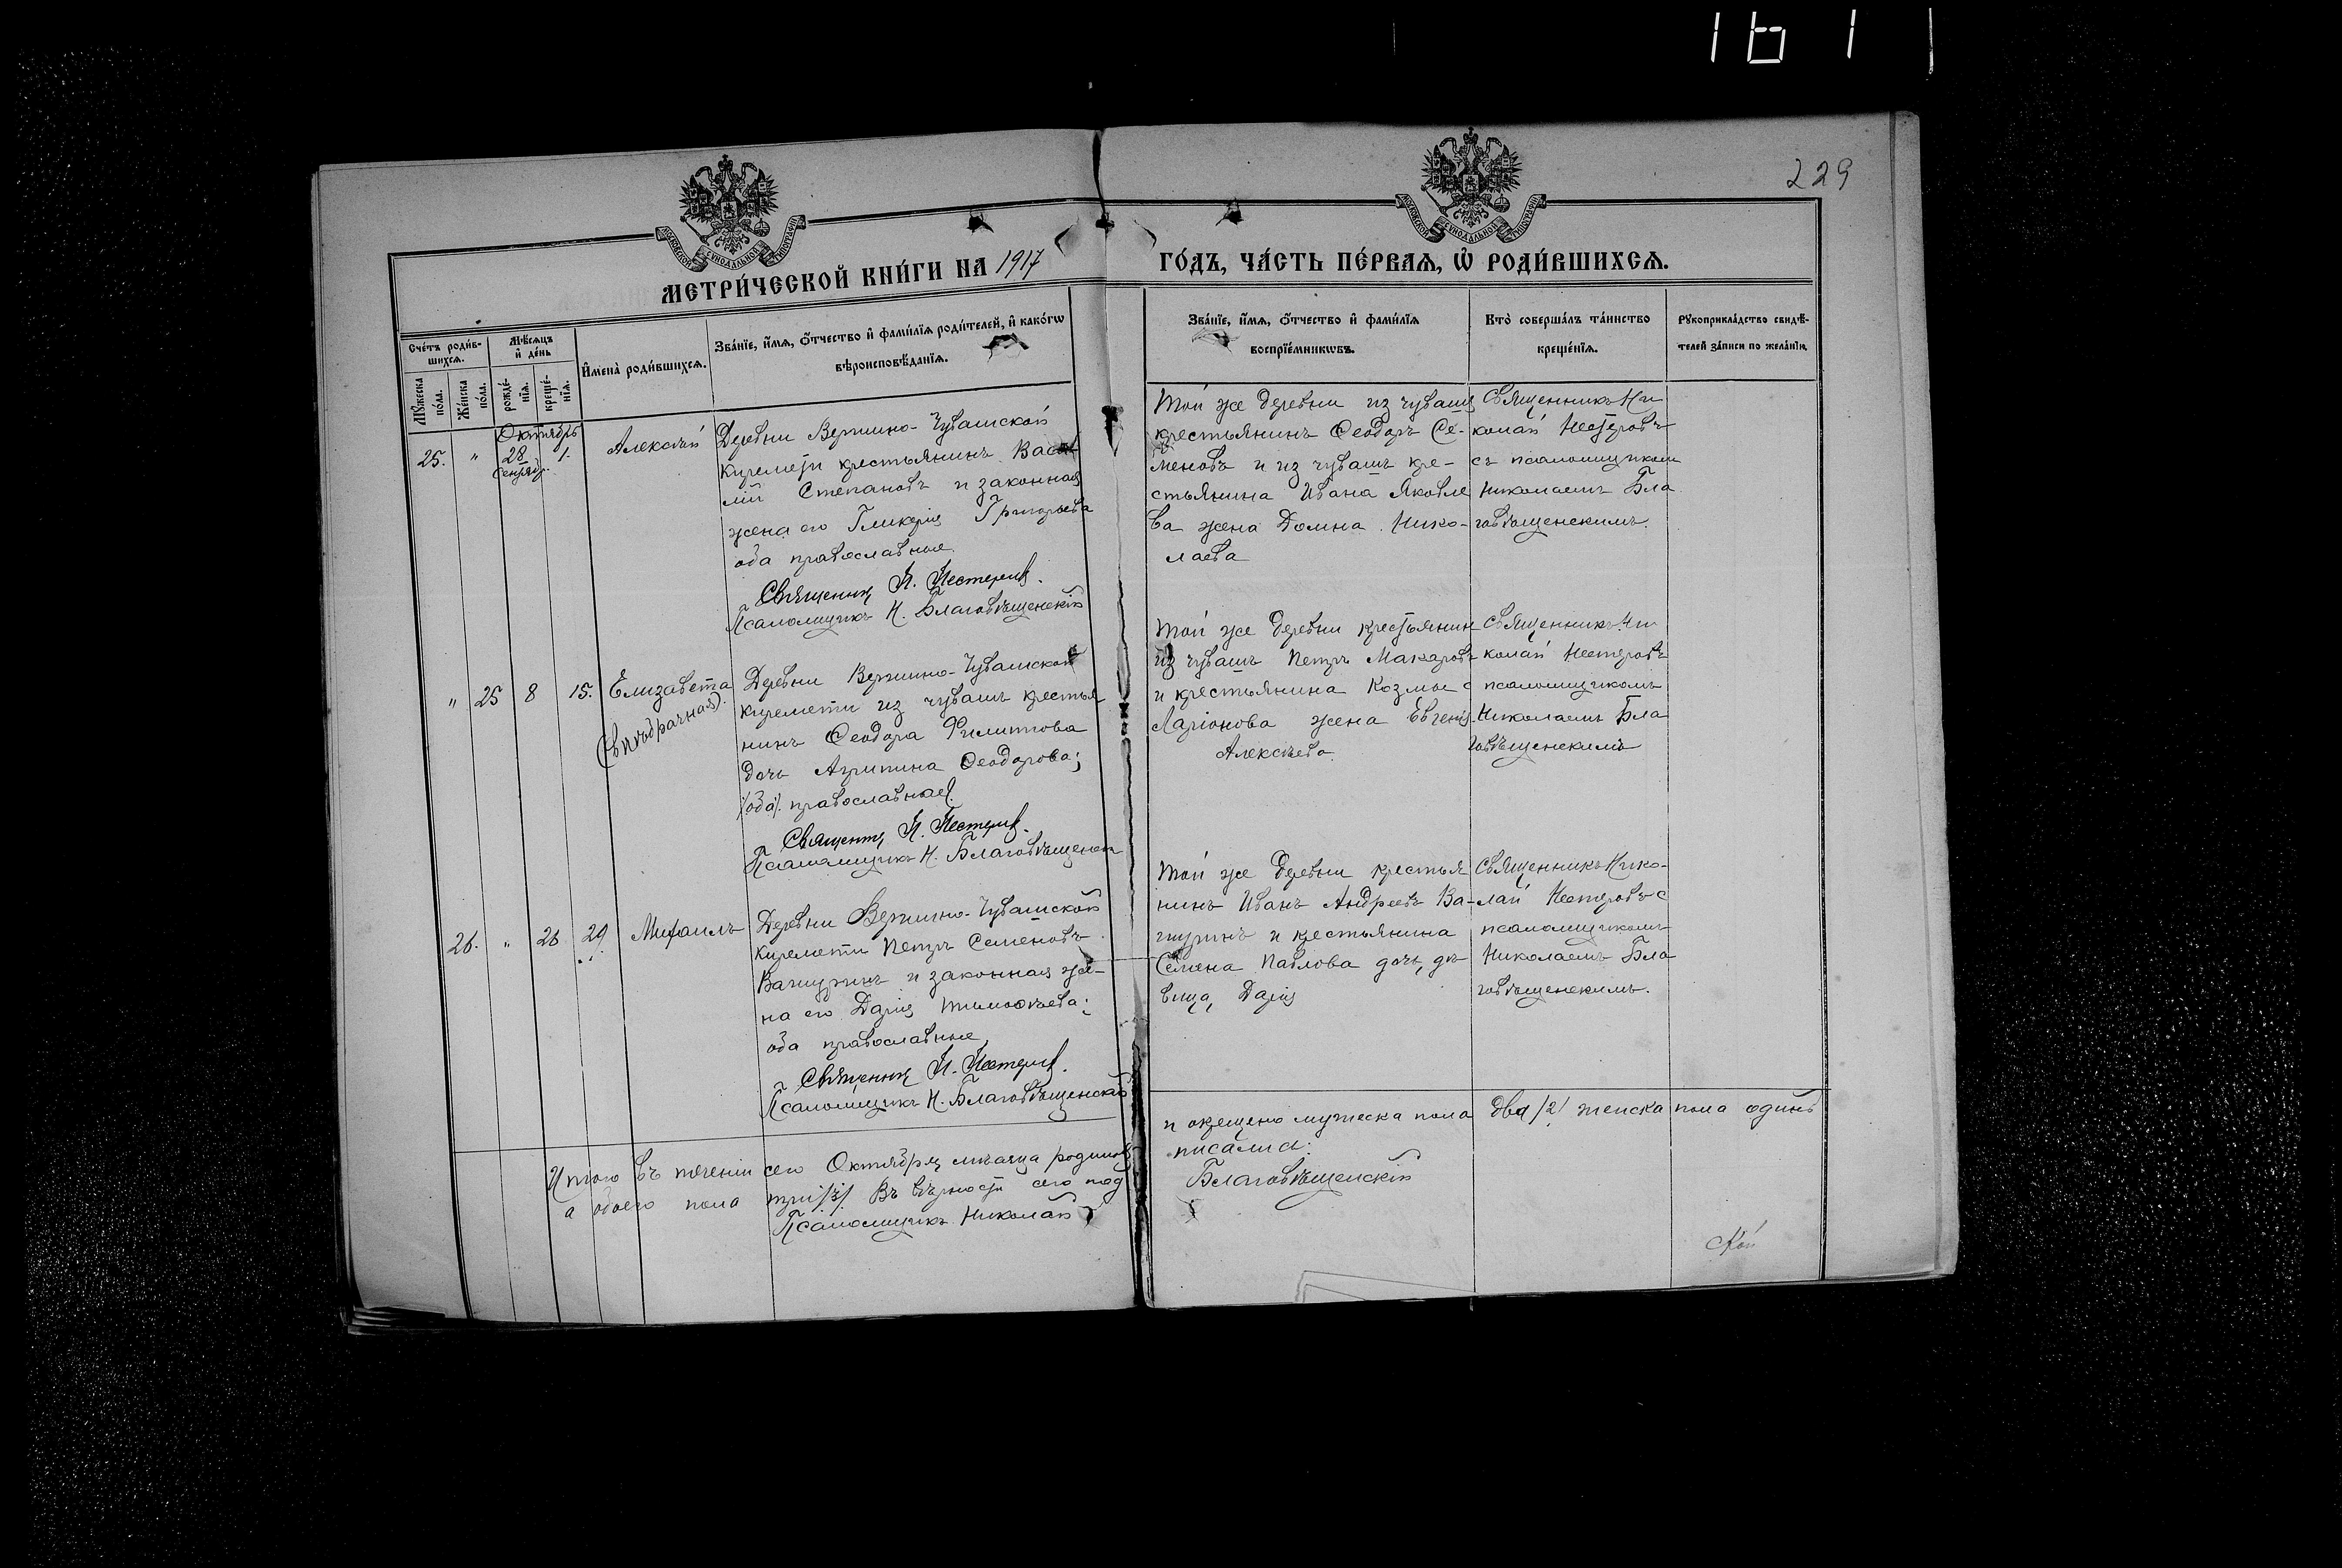 229
МЕТРИ́ЧЕСКОЙ КНИ́ГИ НА 1917 ГО́ДЪ, ЧА́СТЬ ПЕ́РВАЯ, Ѡ РОДИ́ВШИХСЯ.
Сче́тъ роди́в-
шихся.
Мꙋ́жеска
по́ла.
Же́нска
по́ла.
Мѣ́сяцъ
и҆ де́нь
рожде́-
нїя.
креще́-
нїя.
И҆мена̀ роди́вшихся.
Зва́нїе, и҆́мя, ѻ҆́тчество и҆ фами́лїя роди́телей, и҆ како́гѡ
вѣроисповѣ́данїя.
Зва́нїе, и҆́мя, ѻ҆́тчество и҆ фами́лїя
воспрїе́мникѡвъ.
Кто̀ соверша́лъ та́инство
креще́нїя.
Рꙋкоприкла́дство свидѣ́-
телей за́писи по жела́нїю.
Октябрь
25. " 28 1.
Сентяб.
Алексѣй
Деревни Вершино-Чувашской
Киремети крестьянинъ Васи
лій Степановъ и законная
жена его Гликерія Григорьева
оба православные.
Священникъ Н. Нестеровъ.
Псаломщикъ Н. Благовѣщенскій
Той же деревни из чувашъ
крестьянинъ Ѳеодоръ Се-
меновъ и из чувашъ кре-
стьянина Ивана Яковле
ва жена Домна Нико-
лаева
Священникъ Ни
колай Нестеровъ
съ псаломщикомъ
Николаемъ Бла
говѣщенскимъ.
" 25 8 15.
Елизавета
(внѣбрачная).
Деревни Вершино-Чувашской
Киремети из чувашъ крестья
нинъ Ѳеодора Филиппова
дочь Агрипина Ѳеодорова;
/оба/. православная.
Священникъ Н. Нестеровъ.
Псаломщикъ Н. Благовѣщенск
Той же деревни крестьянин
из чувашъ Петръ Макаровъ
и крестьянина Козмы
Ларіонова жена Евгенія
Алексѣева.
Священникъ Ни
колай Нестеровъ
с псаломщикомъ
Николаемъ Бла
говѣщенскимъ
26. " 26 29.
Михаилъ
Деревни Вершино-Чувашской
Киремети Петръ Семеновъ
Вачуринъ и законная же-
на его Дарія Тимоѳѣева;
оба православные
Священникъ Н. Нестеровъ.
Псаломщикъ Н. Благовѣщенскій
Той же деревни крестья
нинъ Иванъ Андреевъ Ва-
чуринъ и крестьянина
Семена Павлова дочь, дѣ
вица, Дарія
Священникъ Нико-
лай Нестеровъ с
псаломщикомъ
Николаемъ Бла
говѣщенскимъ.
Итого въ теченіи сего Октября мѣсяца родилось и окрещено мужеска пола два /2/ женска пола одинъ
а обоего пола три /3/. Въ вѣрности сего под писались:
Псаломщикъ Николай Благовѣщенскій